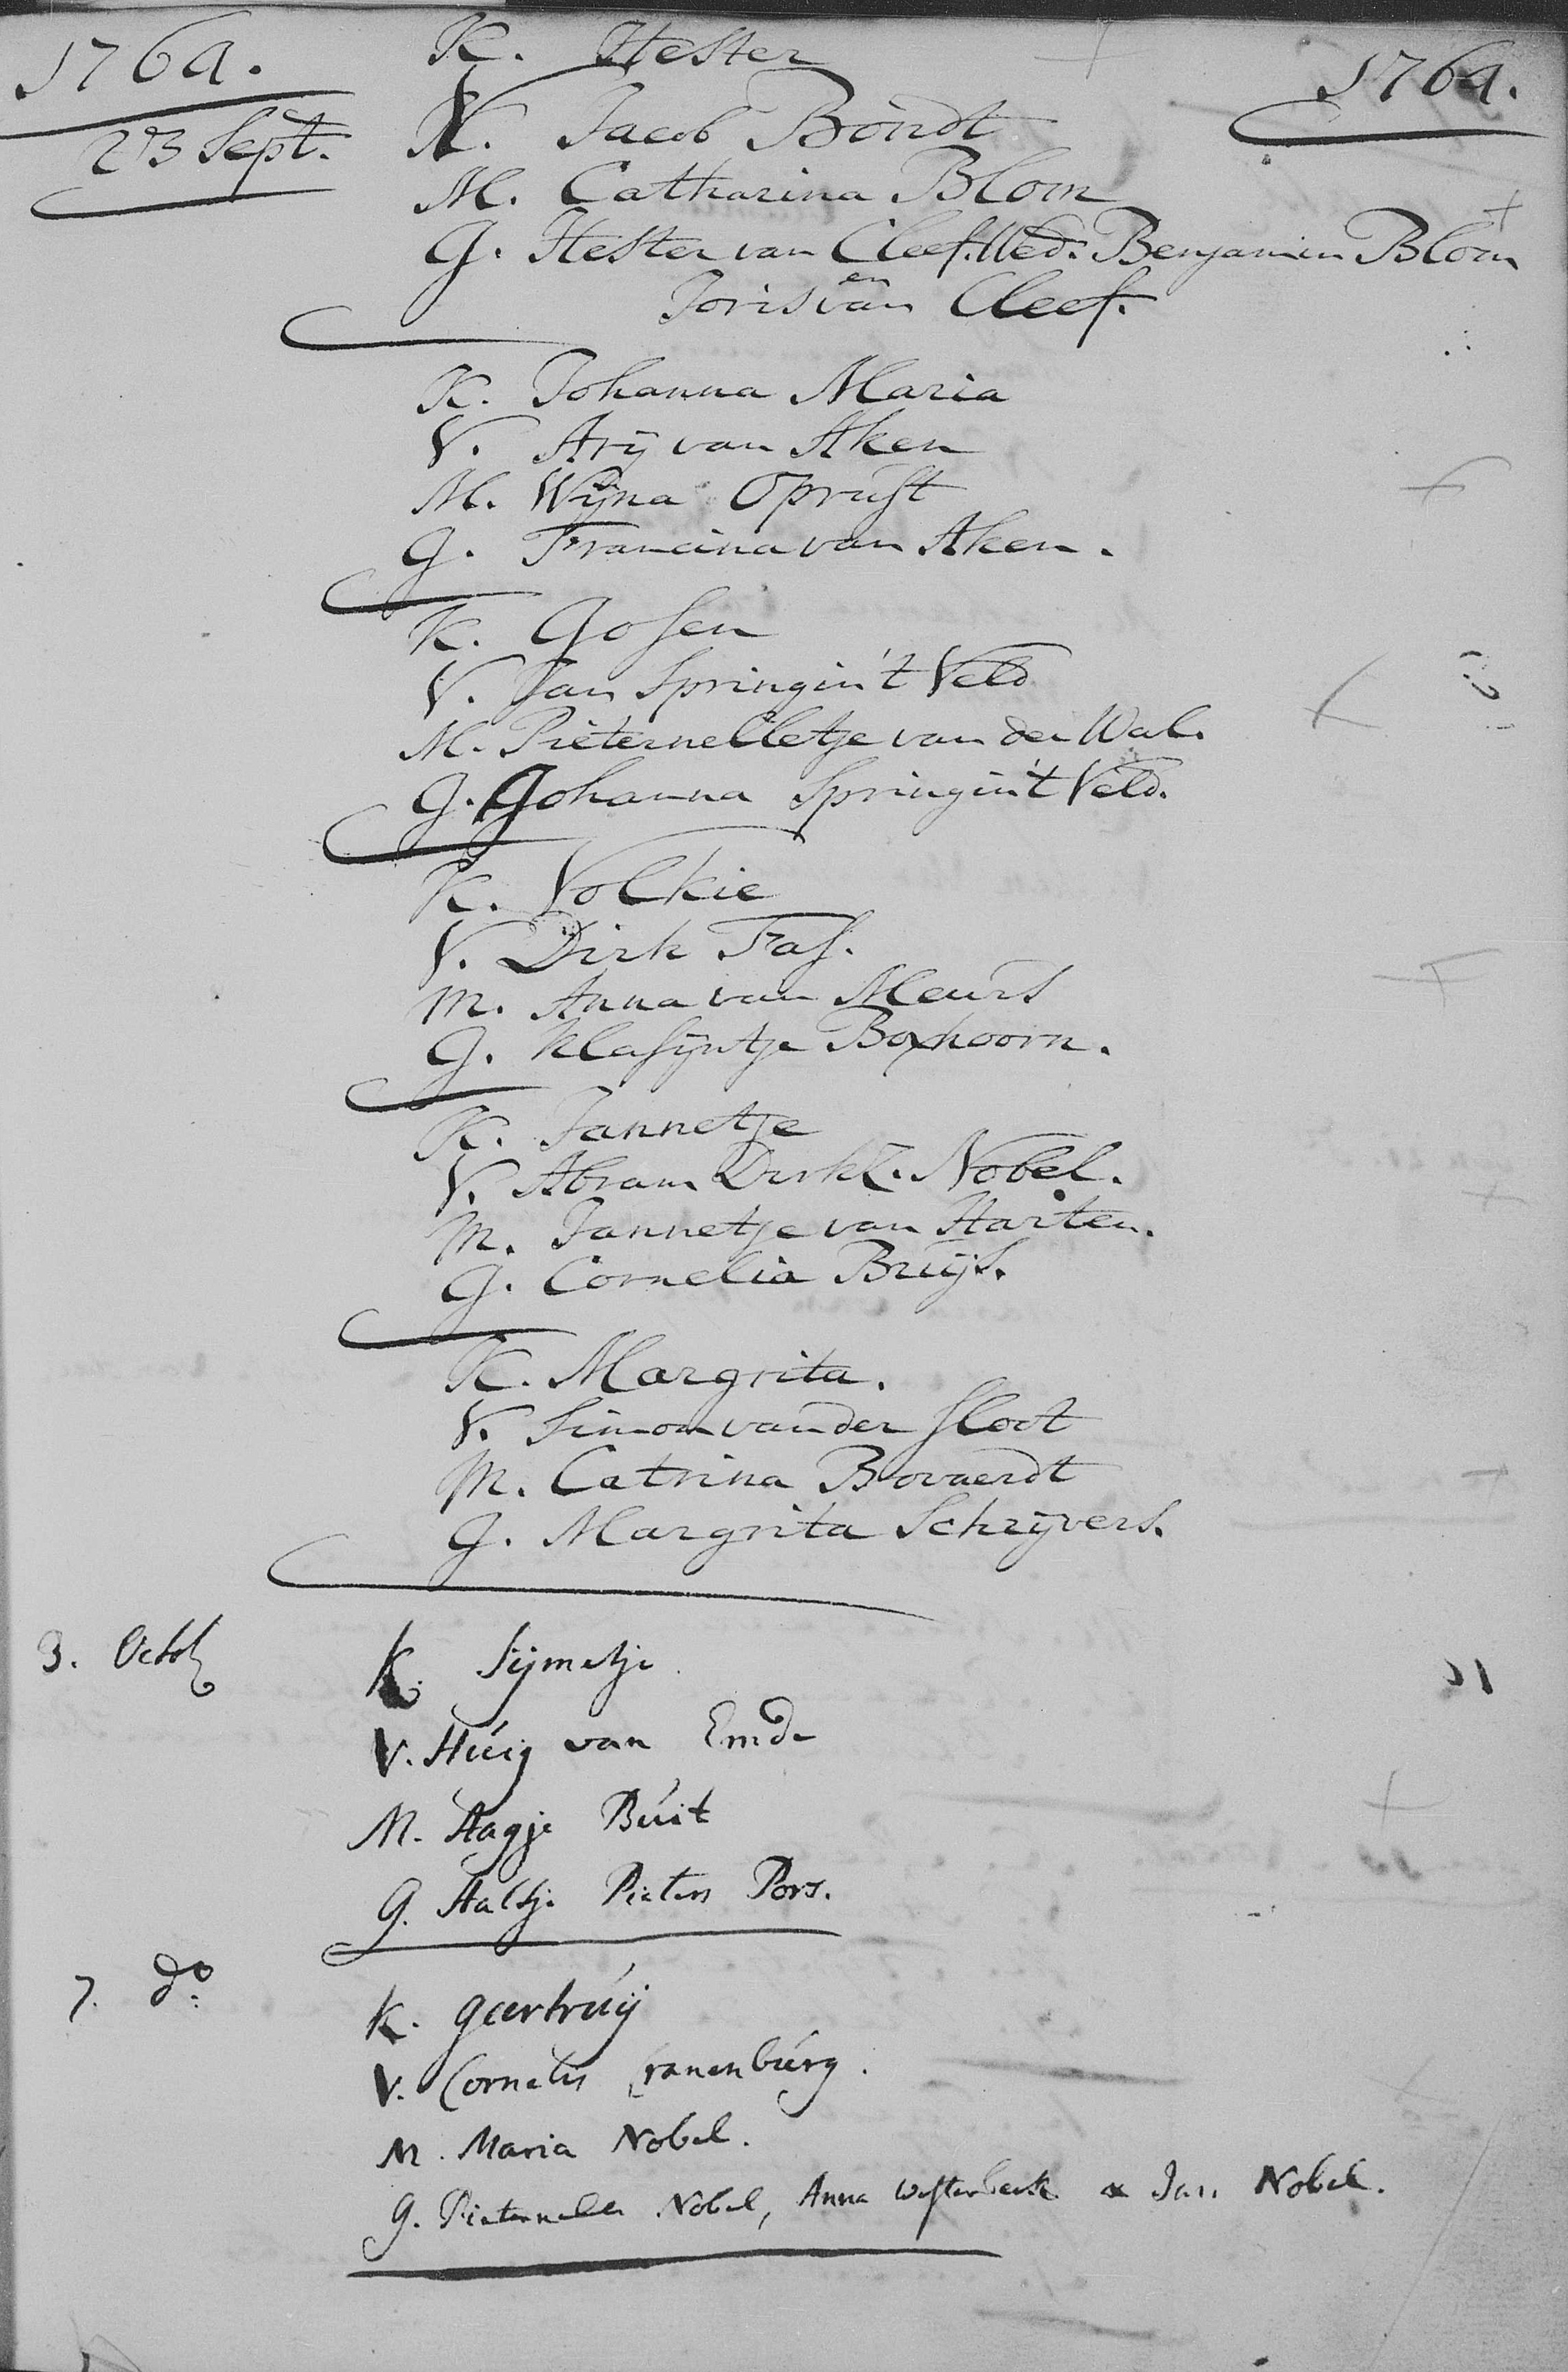 1764.
1764.
23 Sept.
K. Hester
V. Jacob Bondt
M. Catharina Blom
G. Hester van Cleef. Wed: Benjamin Blom
en
Joris van Cleef.
K. Johanna Maria
V. Arij van Aken
M. Wijna Oprust
G. Francina van Aken.
K. Gosen
V. Jan Springin't Veld
M. Pieternelletje van der Wal.
G. Johanna Springin't Veld.
K. Volkie
V. Dirk Fas.
M. Anna van Meurs
G. Klasijntje Boxhoorn.
K. Jannetje
V. Abram Dirkz. Nobel.
M. Jannetje van Harten.
G. Cornelia Bruijs.
K. Margrita.
V. Simon van der Sloot
M. Catrina Bovaerdt
G. Margrita Schrijvers.
3. Octob
K. Sijmetje
V. Huig van Emde
M. Aagje Buit
G. Aaltje Pieters Pors.
7. do:
K. Geertruij
V. Cornelis Cranenburg.
M. Maria Nobel.
G. Pieternella Nobel, Anna Westerbeek & Jan Nobel.